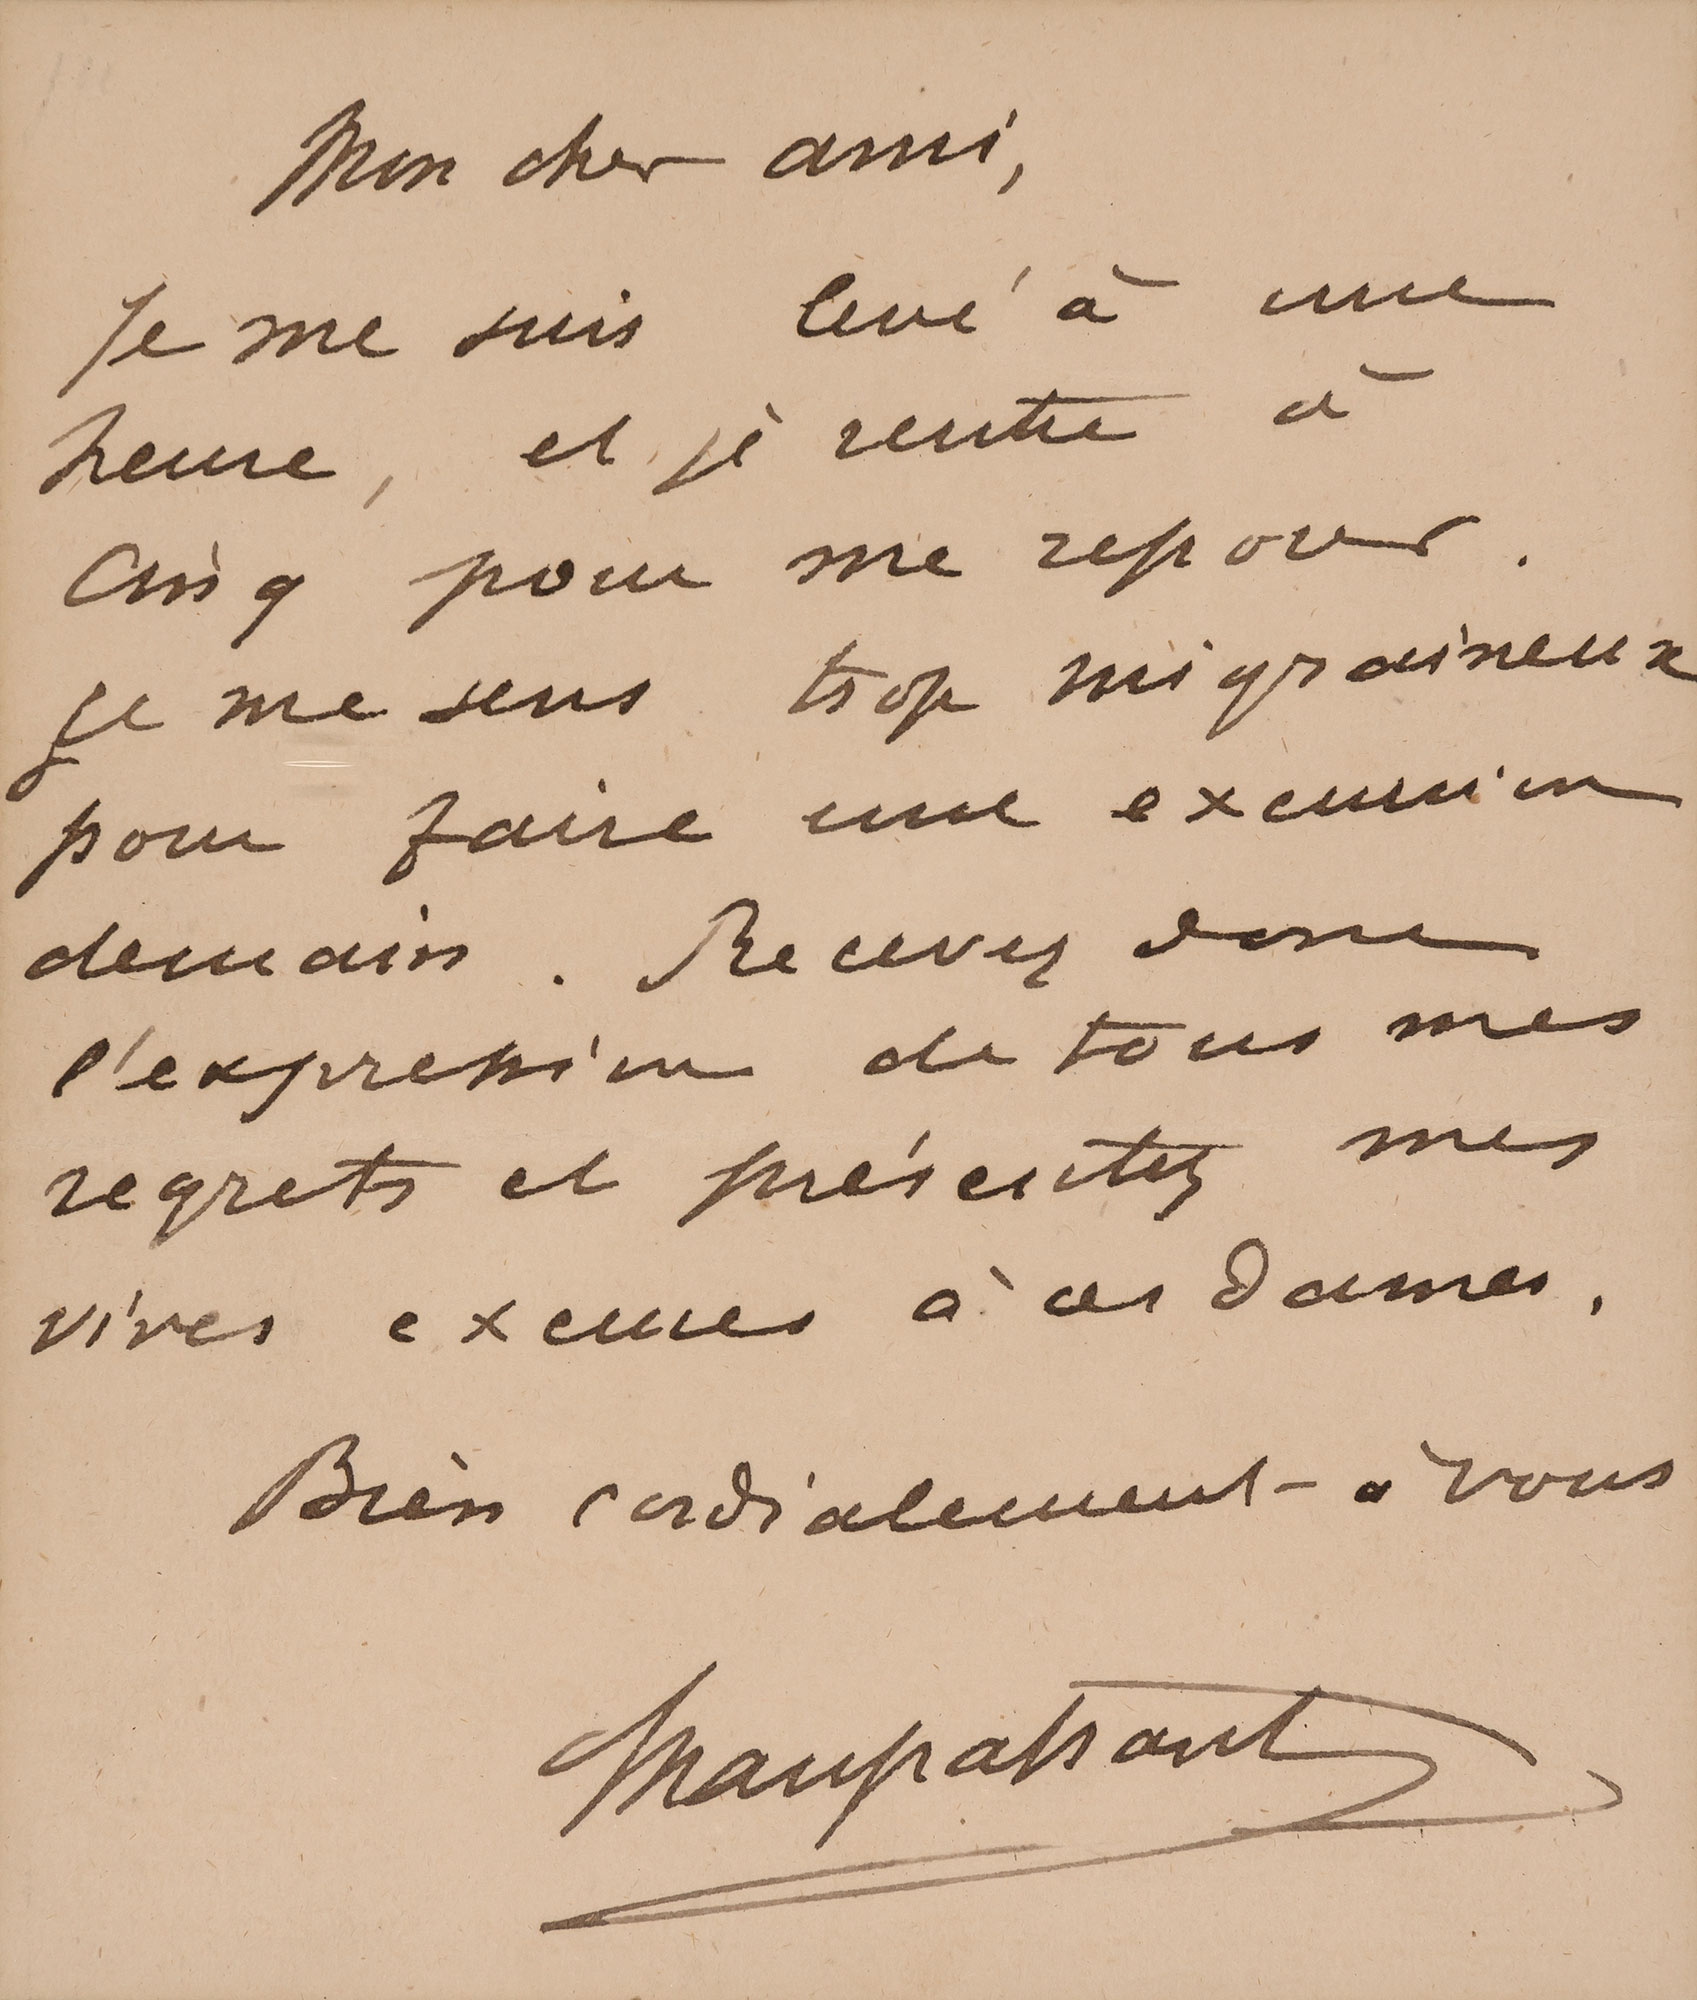 Mon cher ami,
Je me suis levé à une
heure, et je rentre à
Cinq pour me reposer.
Je me sens trop migraineux
pour faire une excursion
demain. Recevez donc
l'expression de tous mes
regrets et présentez mes
vives excuses à ces Dames.
Bien cordialement à vous
Maupassant